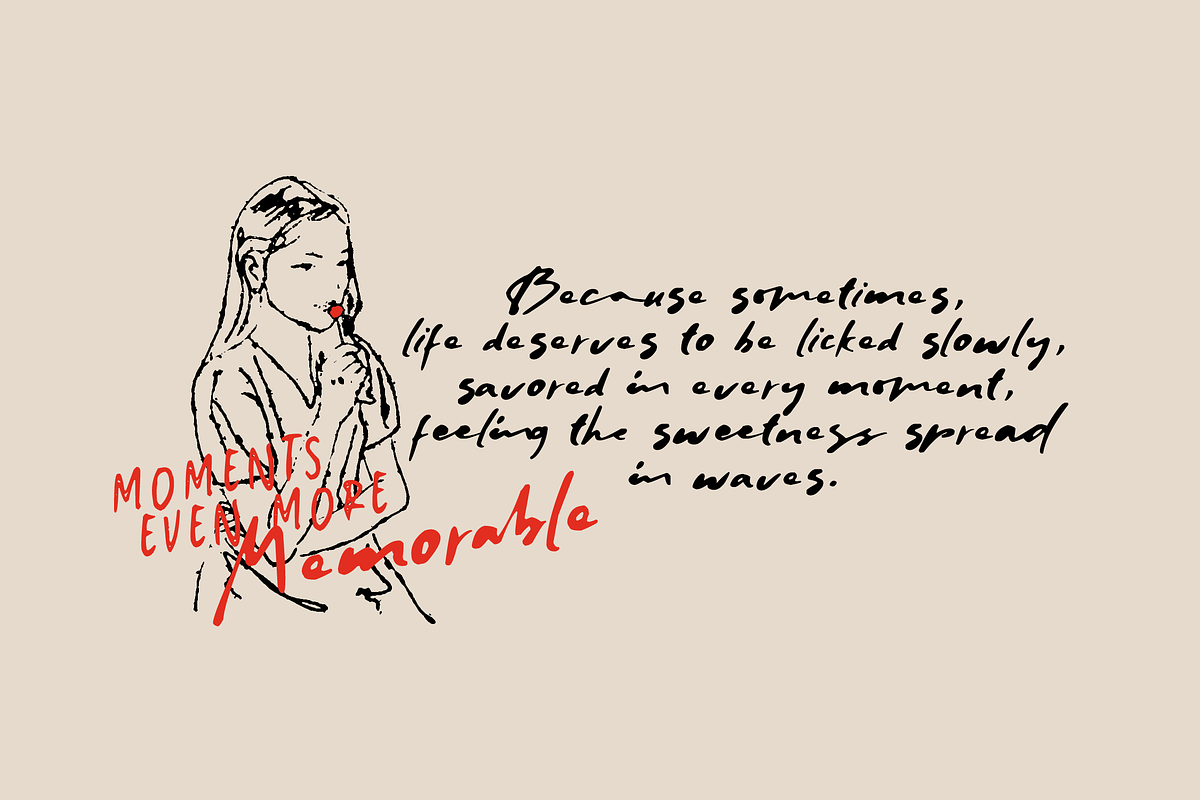 Because sometimes,
life deserves to be licked slowly,
savored in every moment,
feeling the sweetness spread
in waves.
MOMENTS
EVEN MORE
Memorable